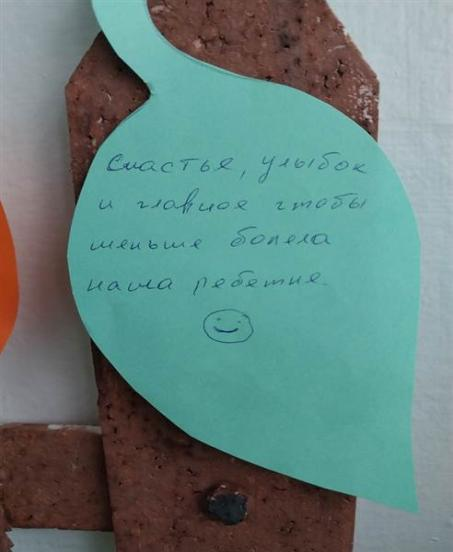 Счастье, улыбок
и главное чтобы
меньше болела
наша ребетня.